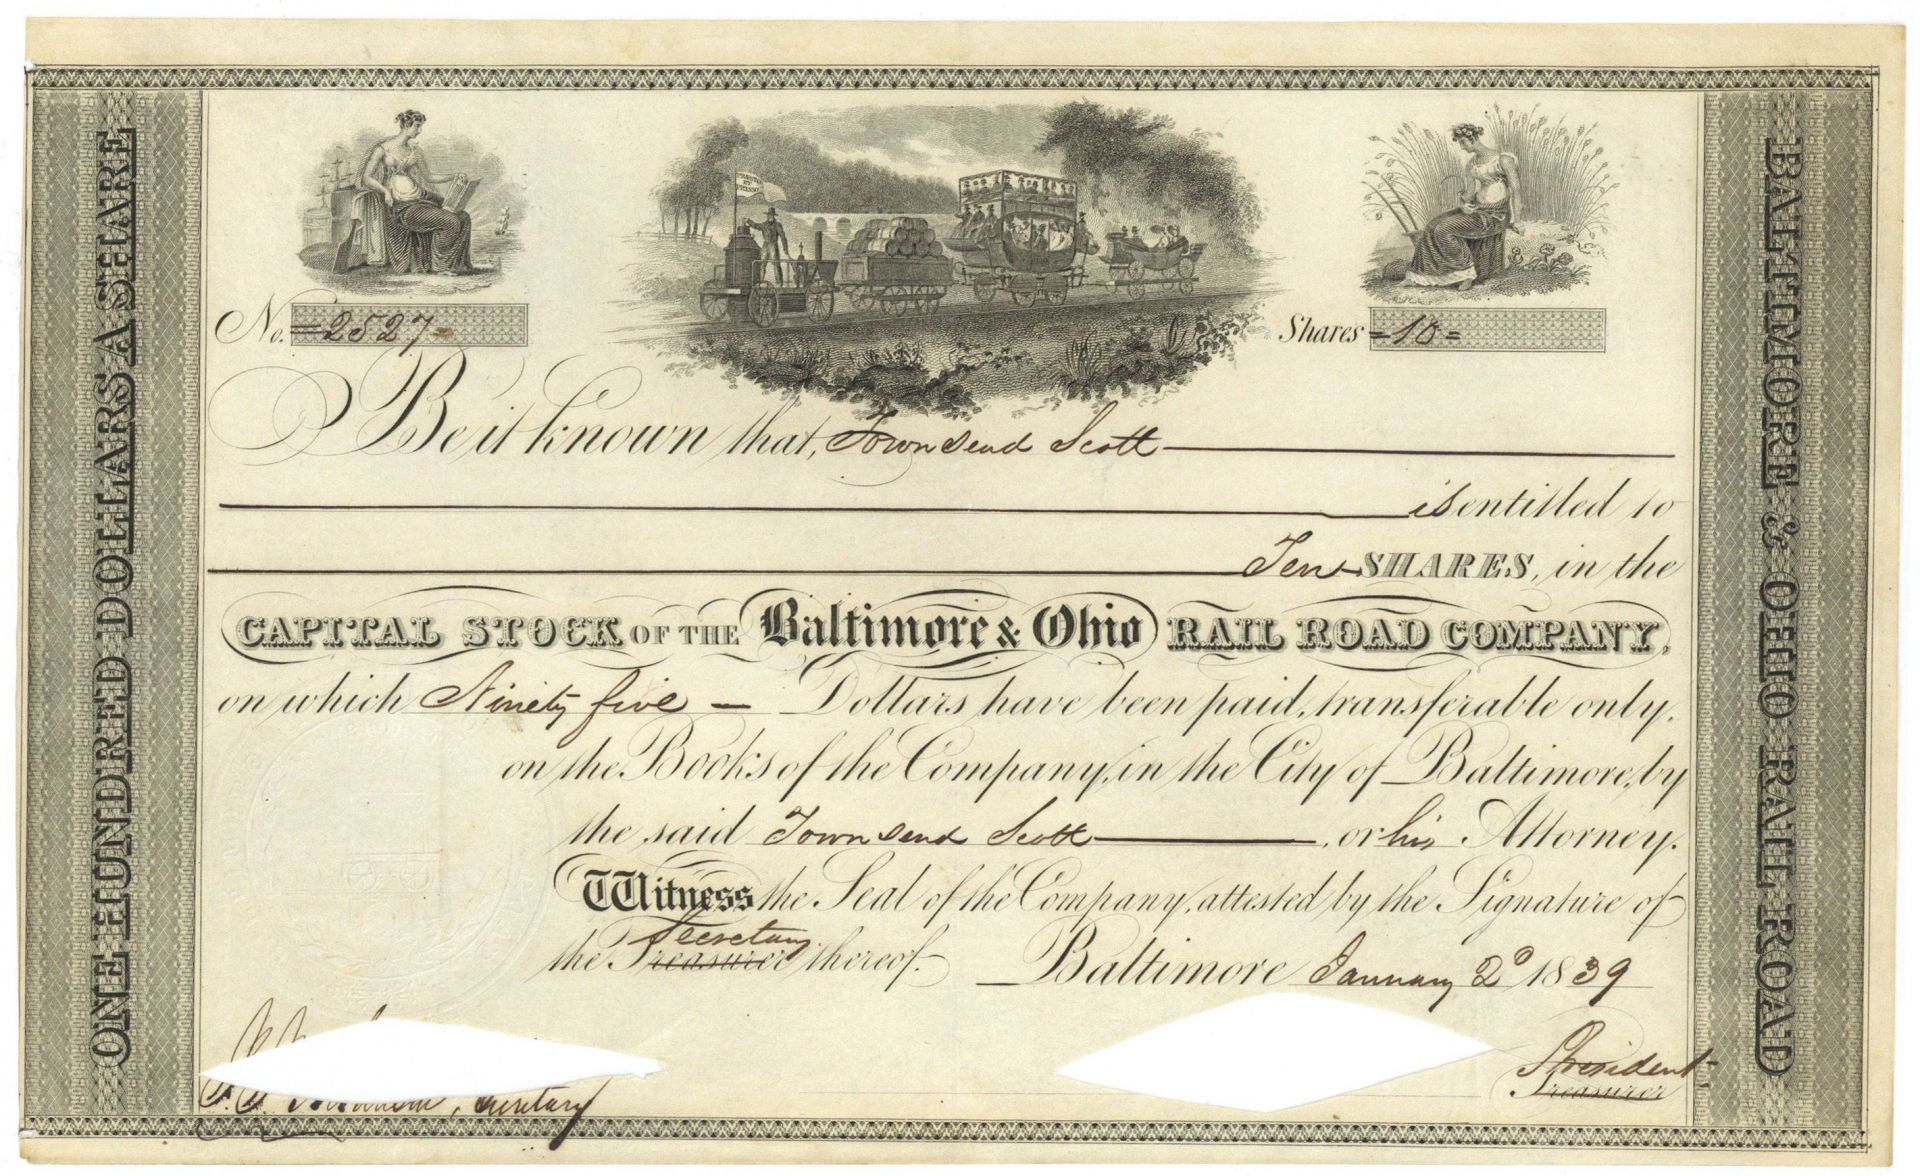 ONE HUNDRED DOLLARS A SHARE
No. =2527=
Shares =10=
Be it known that, Townsend Scott
is entitled to
Ten SHARES, in the
CAPITAL STOCK OF THE Baltimore & Ohio RAIL ROAD COMPANY,
on which Ninety five — Dollars have been paid, transferable only,
on the Books of the Company, in the City of Baltimore, by
the said Townsend Scott, or his Attorney.
Witness the Seal of the Company, attested by the Signature of
Secretary
the Treasurer thereof. Baltimore January 2d 1839
President
Treasurer
Secretary
BALTIMORE & OHIO RAIL ROAD